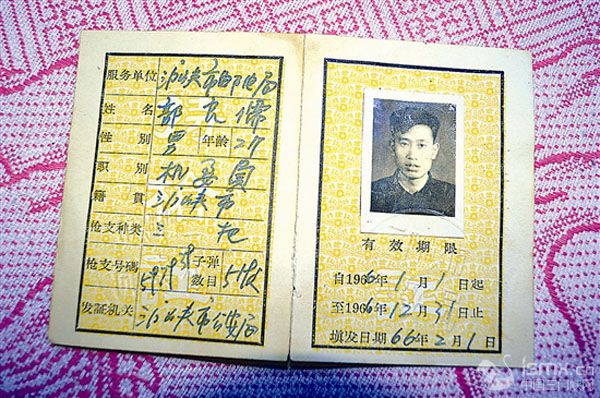 服务单位 三门峡市邮电局
姓名 郜良儒
性别 男 年龄 27
职别 机要员
籍贯 三门峡市
枪支种类
枪支号码 子弹数目 51发
发证机关 三门峡市公安局
有效期限
自1966年1月1日起
至1966年12月31日止
填发日期66年2月1日
jsmx.cn
中国三门峡网